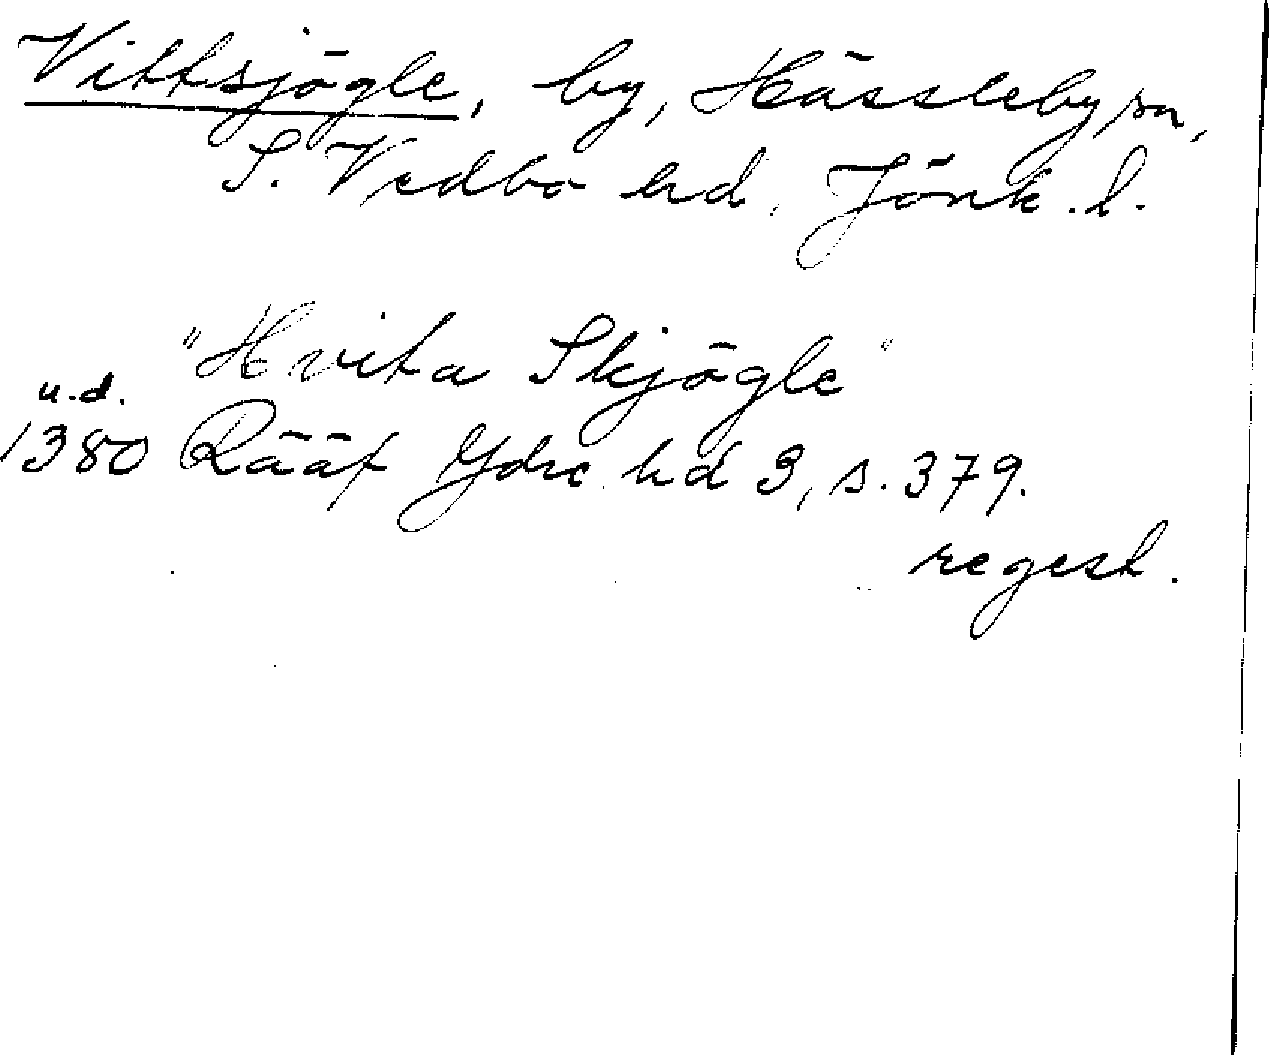 Vittsjögle, by, Hässleby sn,
S. Vedbo hd, Jönk. l.
"Hvita Skjögle"
u.d.
1380 Rääf Ydre hd 3, s. 379.
regest.